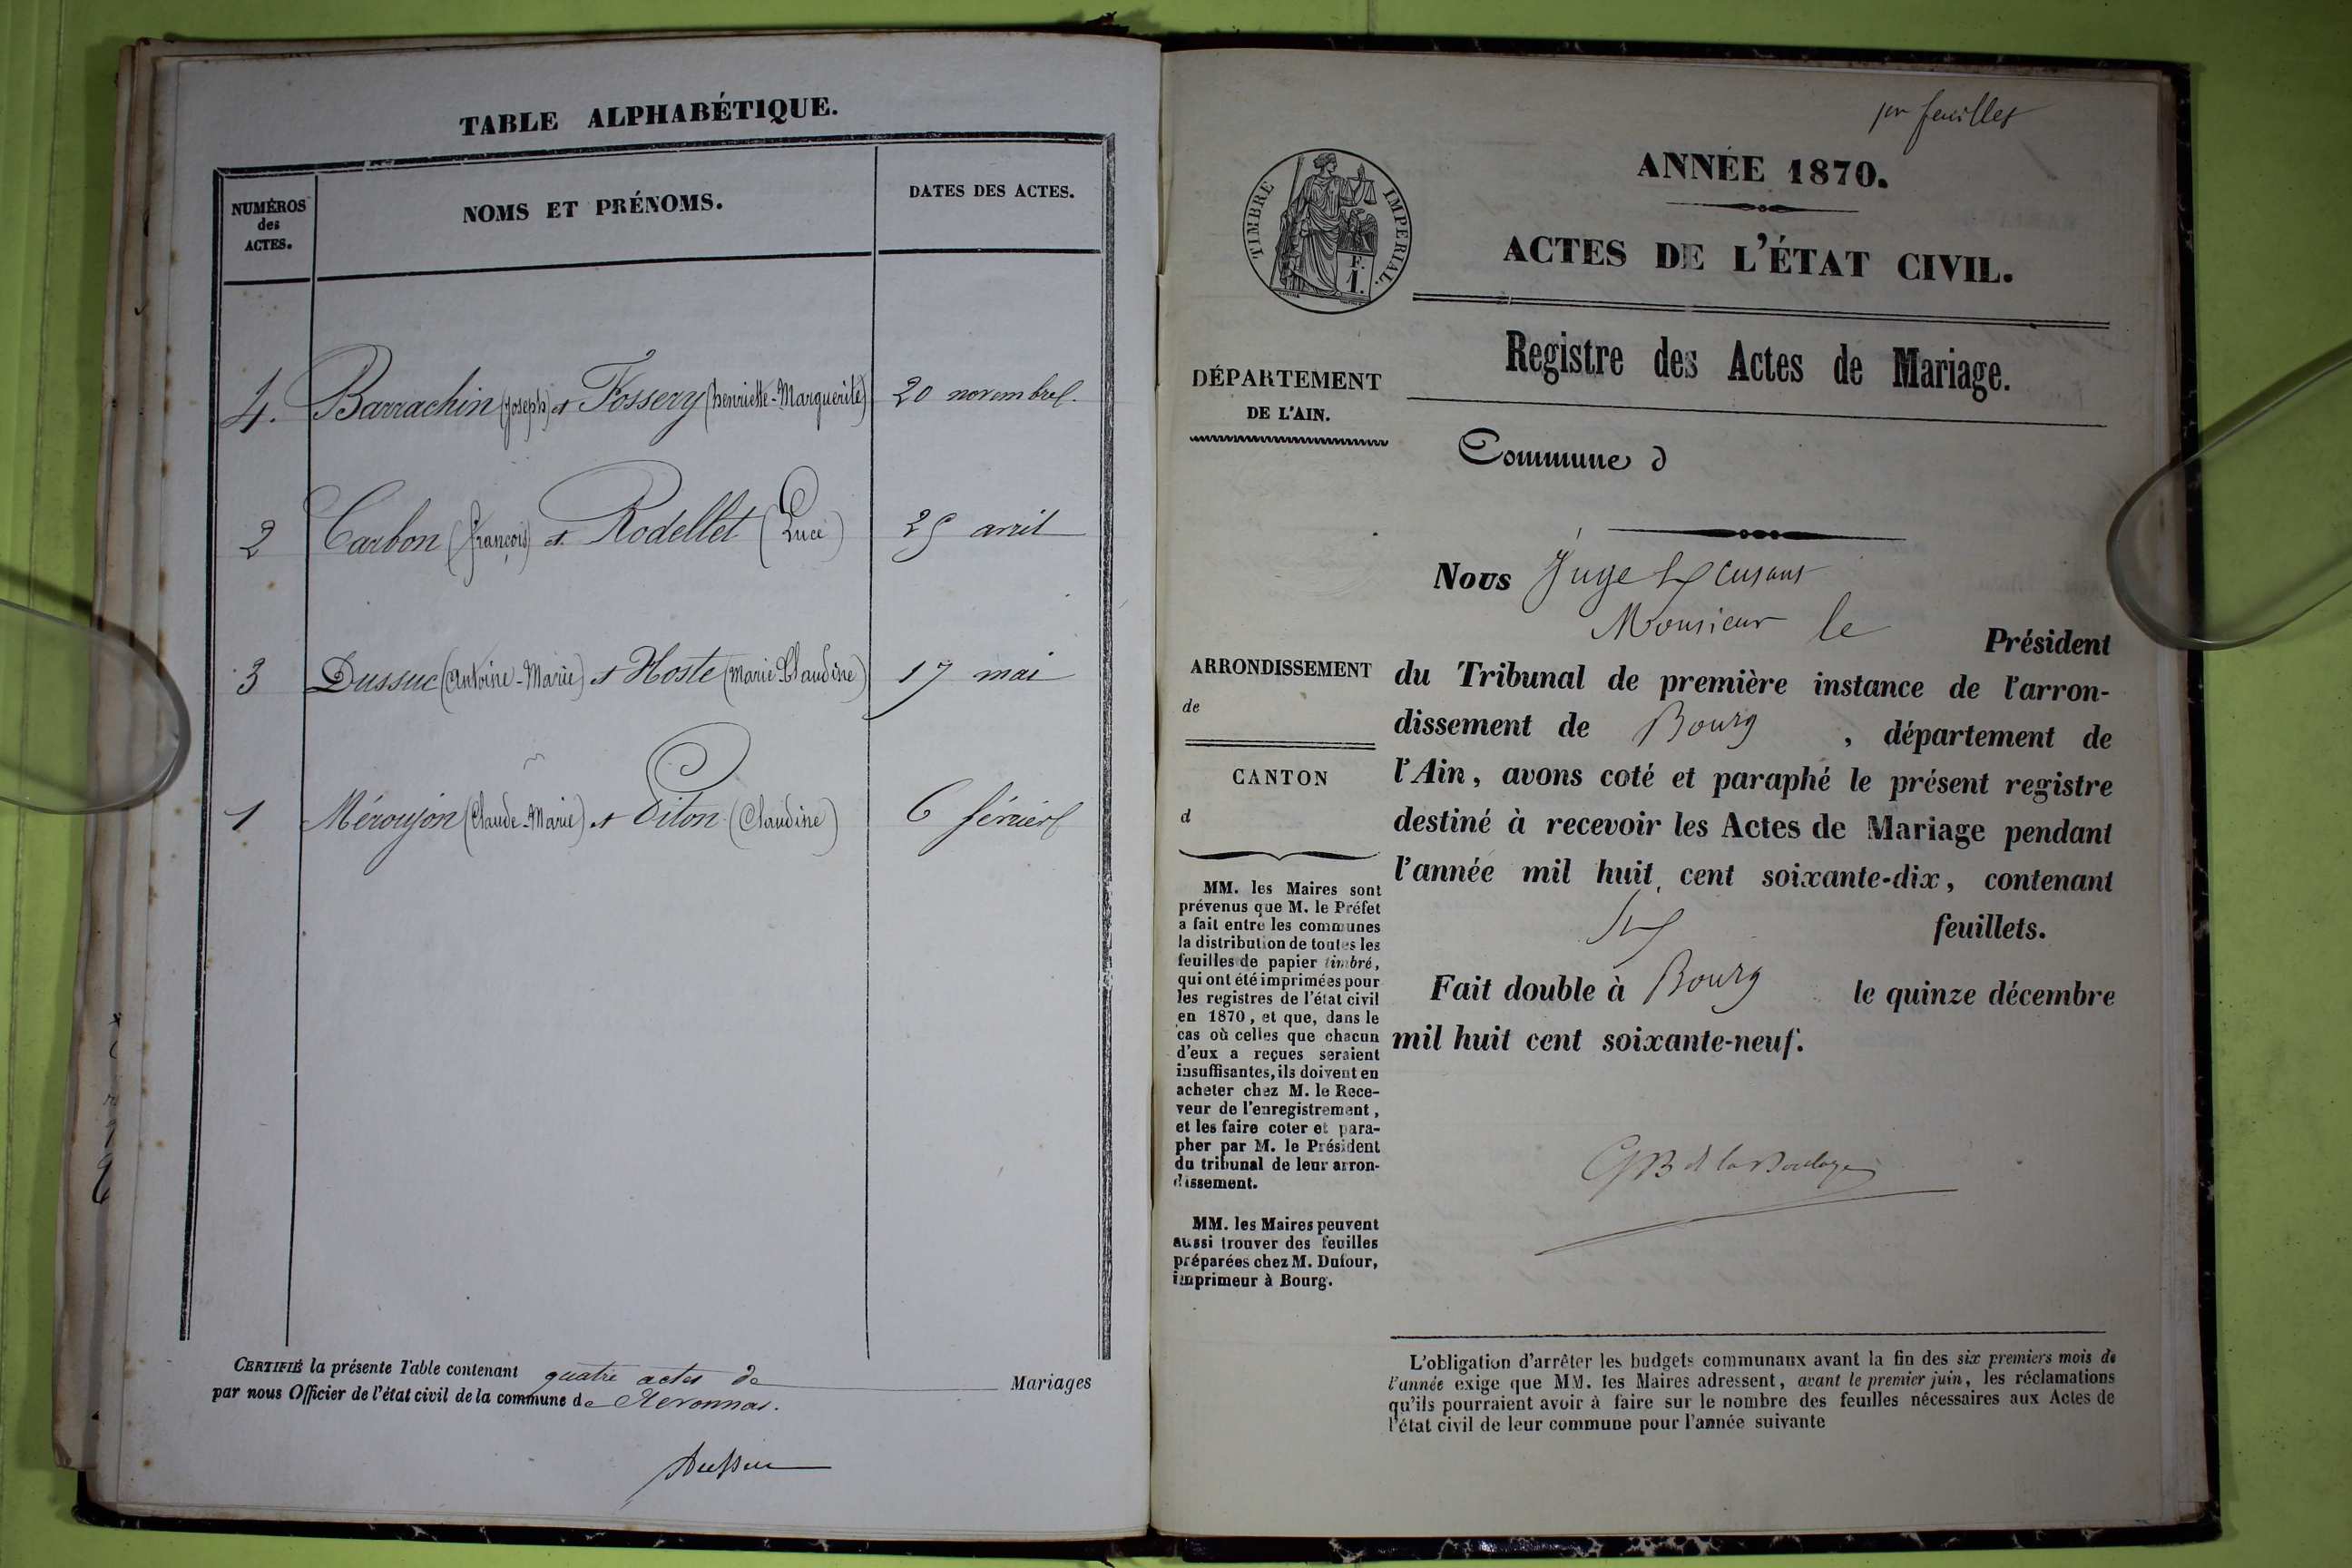 TABLE ALPHABÉTIQUE.
NUMÉROS
des
ACTES.
NOMS ET PRÉNOMS.
DATES DES ACTES.
4. Barrachin (Joseph) et Fossery (henriette-Marguerite) 20 novembre.
2 Carbon (François) et Rodellet (Luce) 25 avril
3 Dussuc (Antoine-Marie) et Hoste (Marie-Claudine) 17 mai
1 (Claude-Marie) et Piton (Claudine) 6 février
CERTIFIÉ la présente Table contenant quatre actes de Mariages
par nous Officier de l'état civil de la commune de
Dussuc
1er feuillet
ANNÉE 1870.
TIMBRE IMPERIAL.
F.
1.
ACTES DE L'ÉTAT CIVIL.
Registre des Actes de Mariage.
DÉPARTEMENT
DE L'AIN.
Commune d
Nous Juge
Monsieur le Président
ARRONDISSEMENT
de
du Tribunal de première instance de l'arron-
dissement de Bourg, département de
l'Ain, avons coté et paraphé le présent registre
destiné à recevoir les Actes de Mariage pendant
l'année mil huit cent soixante-dix, contenant
feuillets.
Fait double à Bourg le quinze décembre
mil huit cent soixante-neuf.
CANTON
d
MM. les Maires sont
prévenus que M. le Préfet
a fait entre les communes
la distribution de toutes les
feuilles de papier timbré,
qui ont été imprimées pour
les registres de l'état civil
en 1870, et que, dans le
cas où celles que chacun
d'eux a reçues seraient
insuffisantes, ils doivent en
acheter chez M. le Rece-
veur de l'enregistrement,
et les faire coter et para-
pher par M. le Président
du tribunal de leur arron-
dissement.
MM. les Maires peuvent
aussi trouver des feuilles
préparées chez M. Dufour,
imprimeur à Bourg.
L'obligation d'arrêter les budgets communaux avant la fin des six premiers mois de
l'année exige que MM. les Maires adressent, avant le premier juin, les réclamations
qu'ils pourraient avoir à faire sur le nombre des feuilles nécessaires aux Actes de
l'état civil de leur commune pour l'année suivante